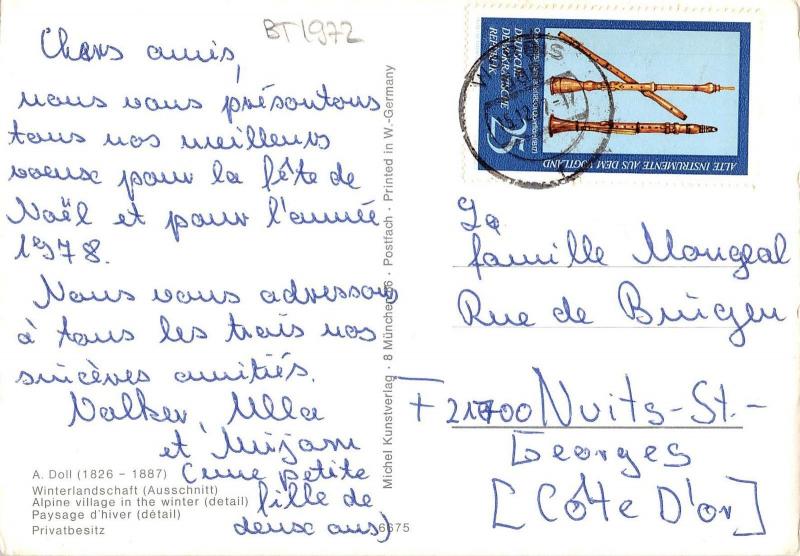 BT1972
Chers amis,
nous vous présentons
tous nos meilleurs
voeux pour la fête de
Noël et pour l'année
1978.
Nous vous adressons
à tous les trois nos
sincères amitiés.
Volker, Ulla
et Mirjam
(une petite
fille de
deux ans)
A. Doll (1826 – 1887)
Winterlandschaft (Ausschnitt)
Alpine village in the winter (detail)
Paysage d'hiver (détail)
Privatbesitz
6675
Michel Kunstverlag · 8 München 66 · Postfach · Printed in W.-Germany
DEUTSCHE
DEMOKRATISCHE
REPUBLIK
25
ALTE INSTRUMENTE AUS DEM VOGTLAND
La
famille Mongeal
Rue de Brügen
F 21700 Nuits-St.-
Georges
[Côte D'or]